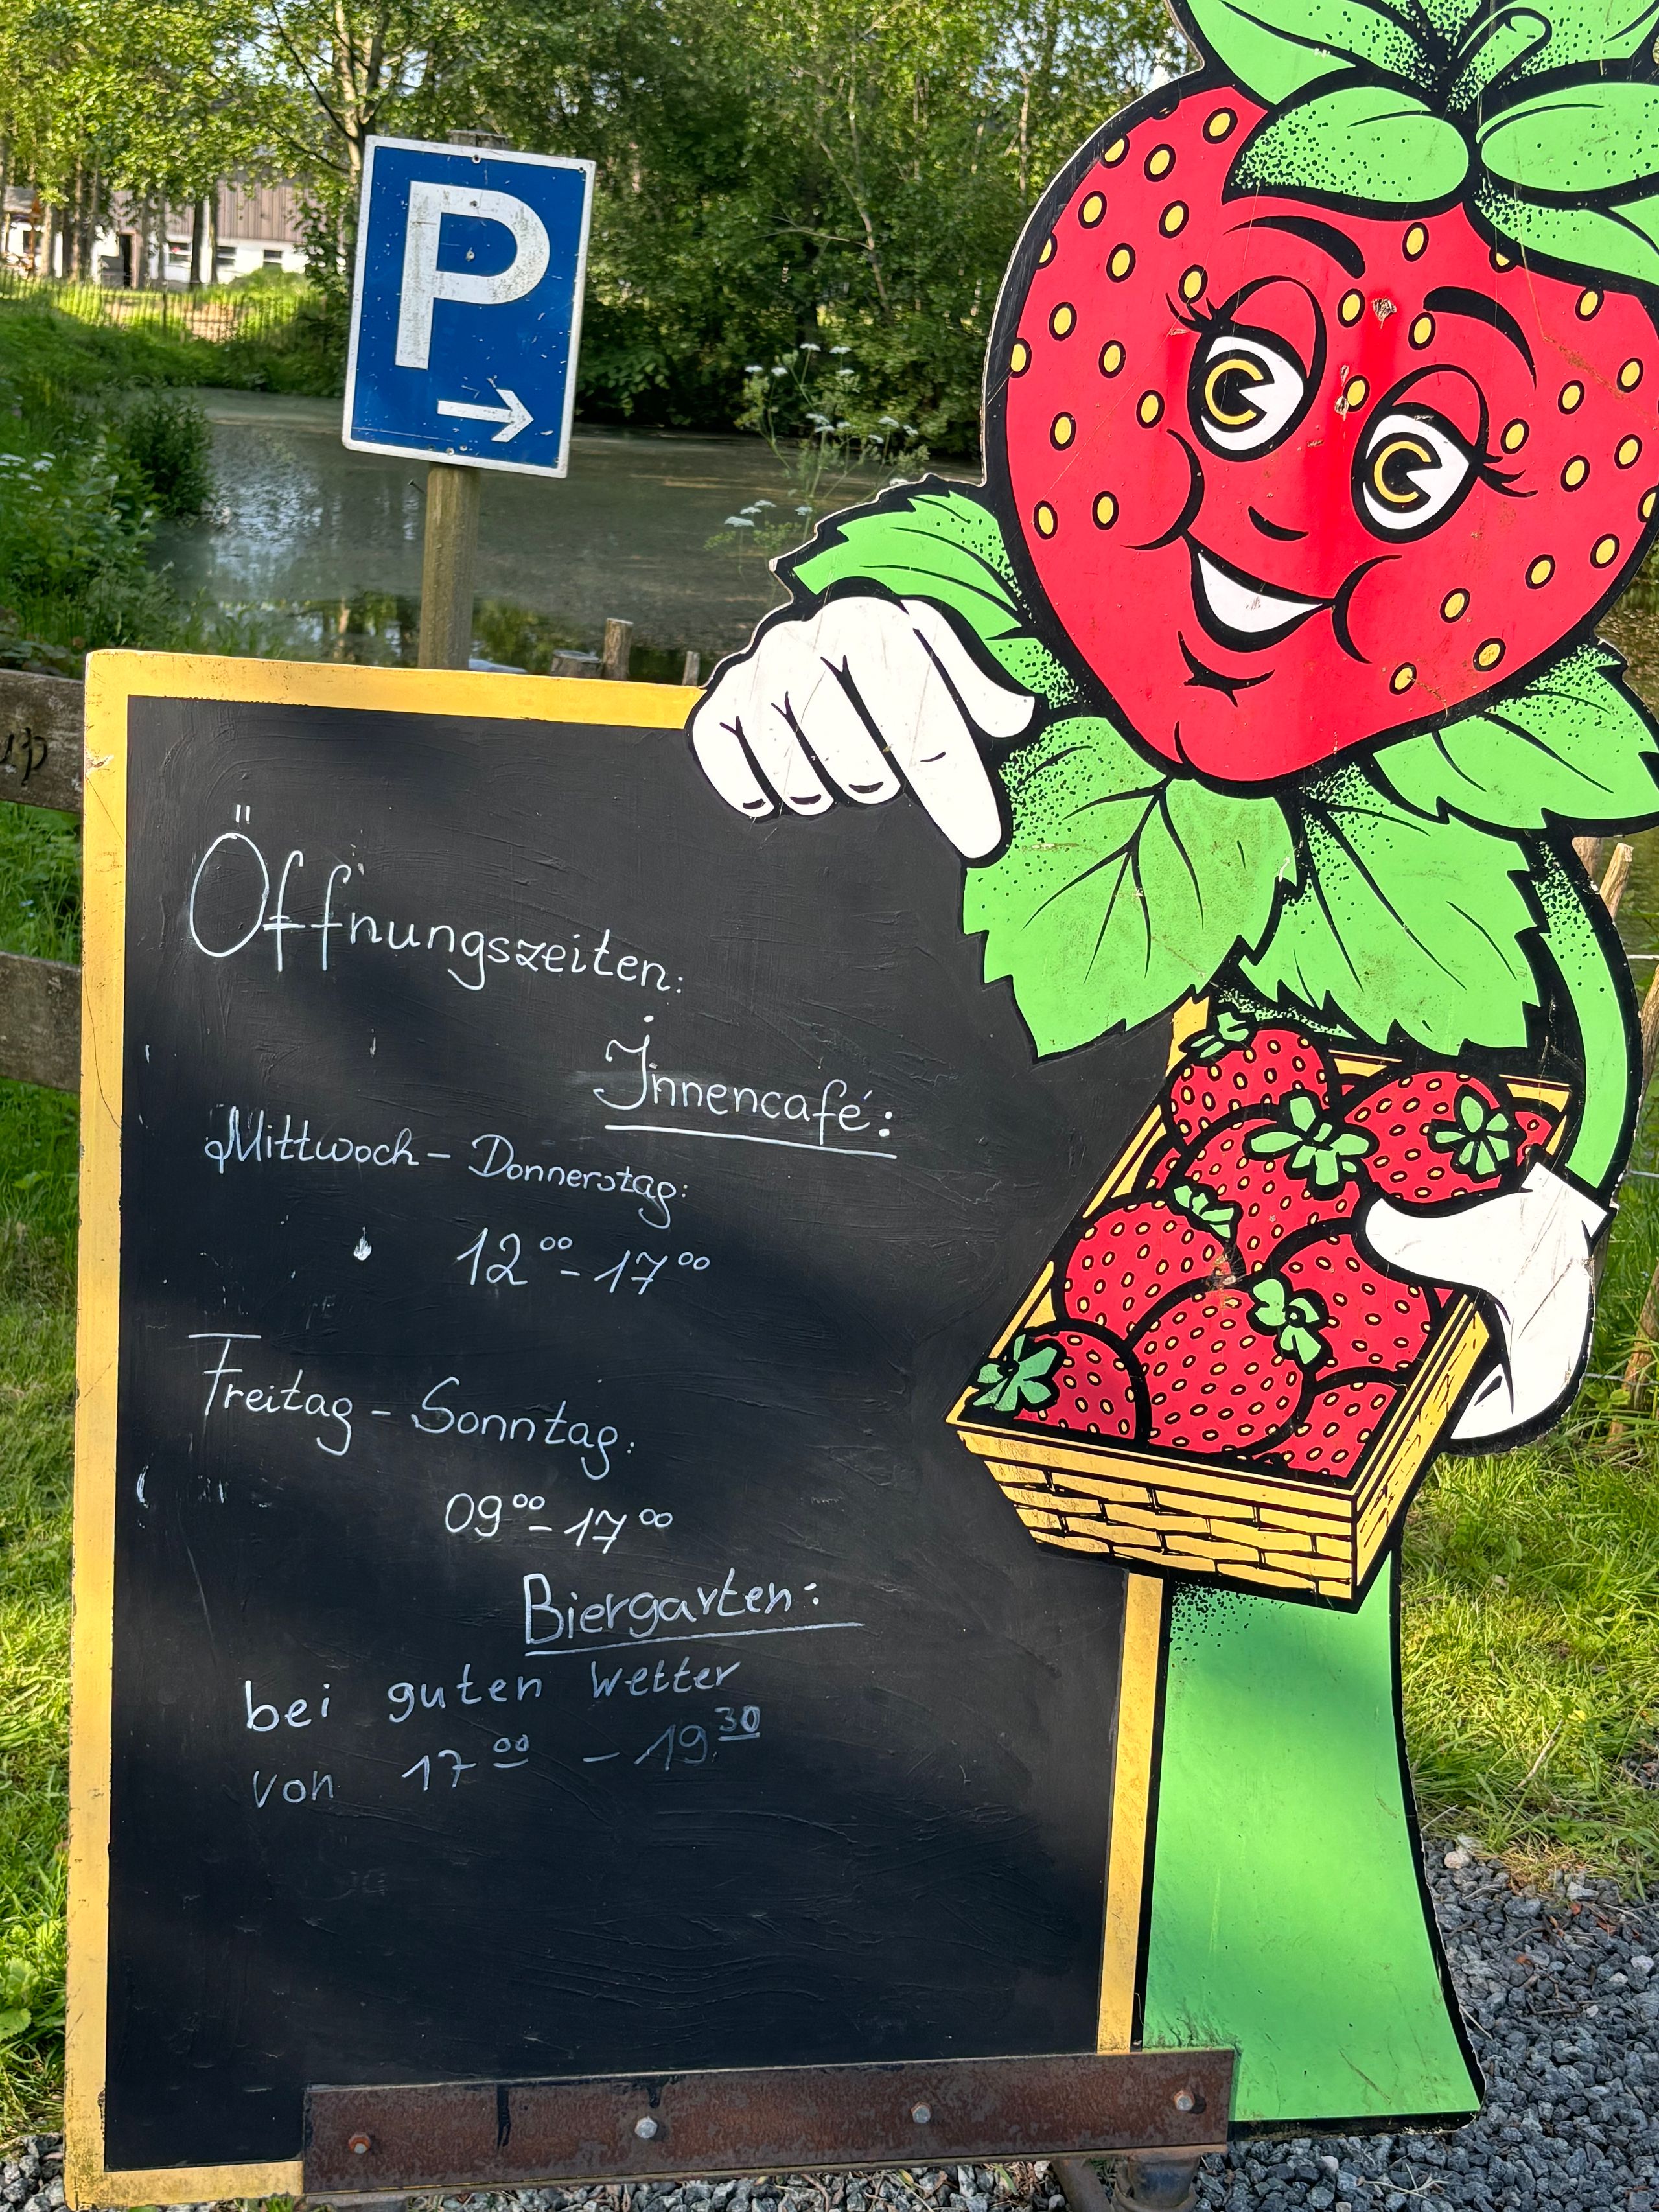 P
Öffnungszeiten:
Innencafé:
Mittwoch - Donnerstag:
12⁰⁰ - 17⁰⁰
Freitag - Sonntag:
09⁰⁰ - 17⁰⁰
Biergarten:
bei guten Wetter
von 17⁰⁰ - 19³⁰